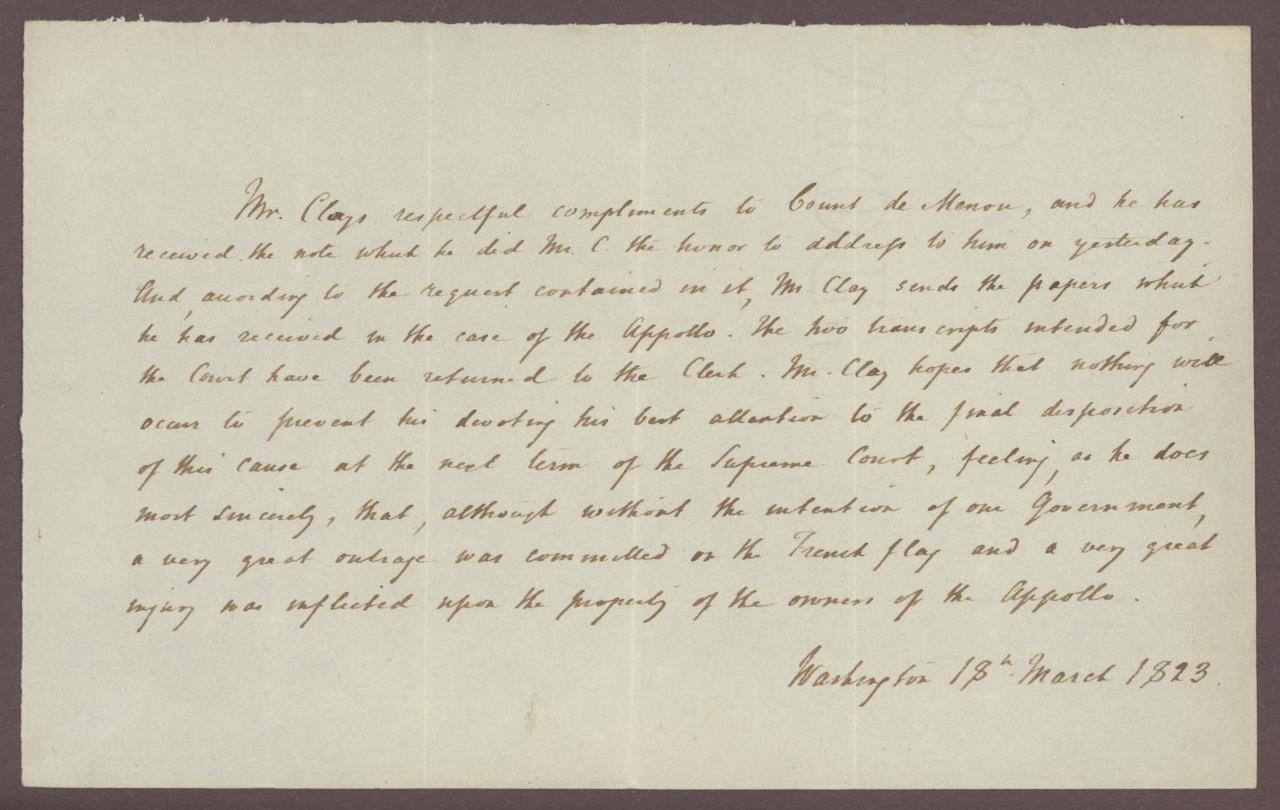 Mr. Clays respectful compliments to Count de Menou, and he has
received the note which he did Mr. C. the honor to address to him on yesterday.
And, according to the request contained in it, Mr Clay sends the papers which
he has received in the case of the Appollo. The two transcripts intended for
the Court have been returned to the Clerk. Mr. Clay hopes that nothing will
occur to prevent his devoting his best attention to the final disposition
of this cause at the next term of the Supreme Court, feeling, as he does
most sincerely, that, although without the intention of our Government,
a very great outrage was committed on the French flag and a very great
injury was inflicted upon the property of the owners of the Appollo.
Washington 18th March 1823.